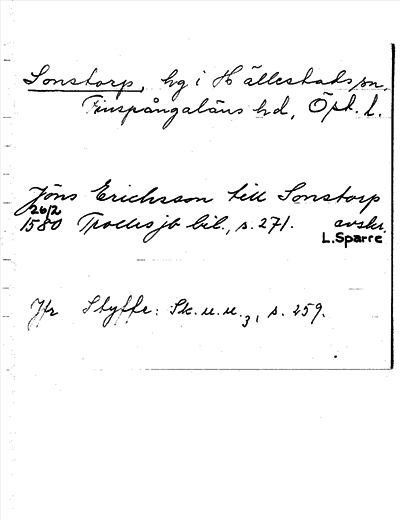 Sonstorp, hg i Hällestads sn,
Finspångaläns hd, Östr. l.
Jöns Erichsson till Sonstorp
26/2
1580 Trolles jb bil., s. 271. avskr.
L. Sparre
Jfr Styffe: Sk. u. u. 3, s. 259.